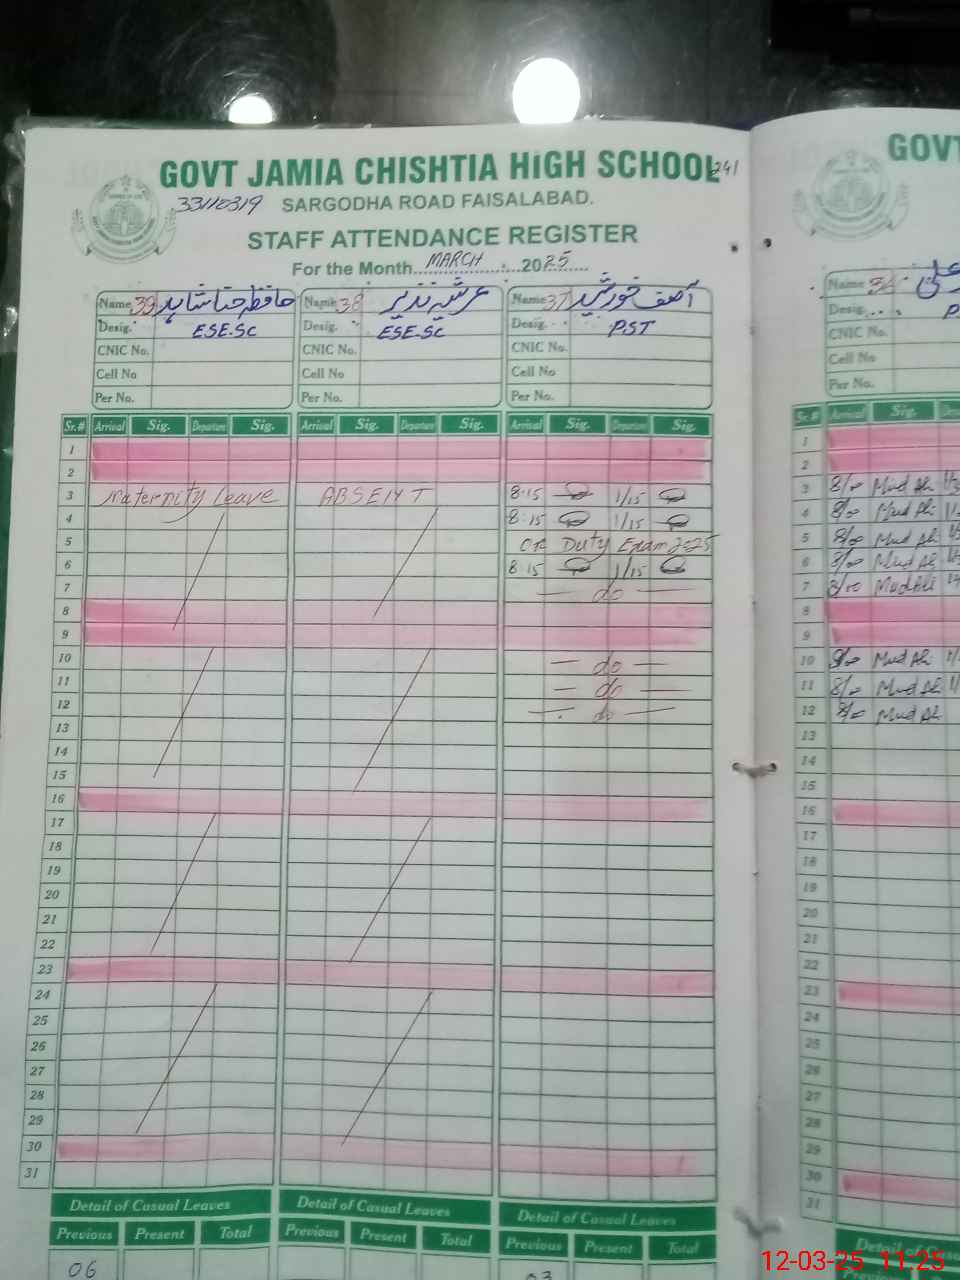 GOVT JAMIA CHISHTIA HIGH SCHOOL 241
33110319 SARGODHA ROAD FAISALABAD.
STAFF ATTENDANCE REGISTER
For the Month MARCH 2025
Name 39 حافظہ حنا شاہد Name 38 عرشیہ نذیر Name 37 آصف خورشید
Desig. ESE.SC Desig. ESE.SC Desig. PST
CNIC No. CNIC No. CNIC No.
Cell No Cell No Cell No
Per No. Per No. Per No.
Sr.# Arrival Sig. Departure Sig. Arrival Sig. Departure Sig. Arrival Sig. Departure Sig.
1
2
3 Maternity Leave ABSENT 8:15 1/15
4 8:15 1/15
5 on Duty Exam 2025
6 8:15 1/15
7 — do —
8
9
10 — do —
11 — do —
12 — do —
13
14
15
16
17
18
19
20
21
22
23
24
25
26
27
28
29
30
31
Detail of Casual Leaves Detail of Casual Leaves Detail of Casual Leaves
Previous Present Total Previous Present Total Previous Present Total
06 03
GOVT
Name
Desig.
CNIC No.
Cell No
Per No.
Sr.# Arrival Sig.
1
2
3 8/00 Mud Ali
4 8/00 Mud Ali
5 8/00 Mud Ali
6 8/00 Mud Ali
7 8/00 Mud Ali
8
9
10 8/00 Mud Ali
11 8/00 Mud Ali
12 8/00 Mud Ali
13
14
15
16
17
18
19
20
21
22
23
24
25
26
27
28
29
30
31
Detail of
Previous
12-03-25 11:25